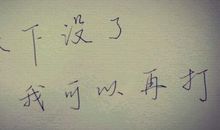 下没了
我可以再打